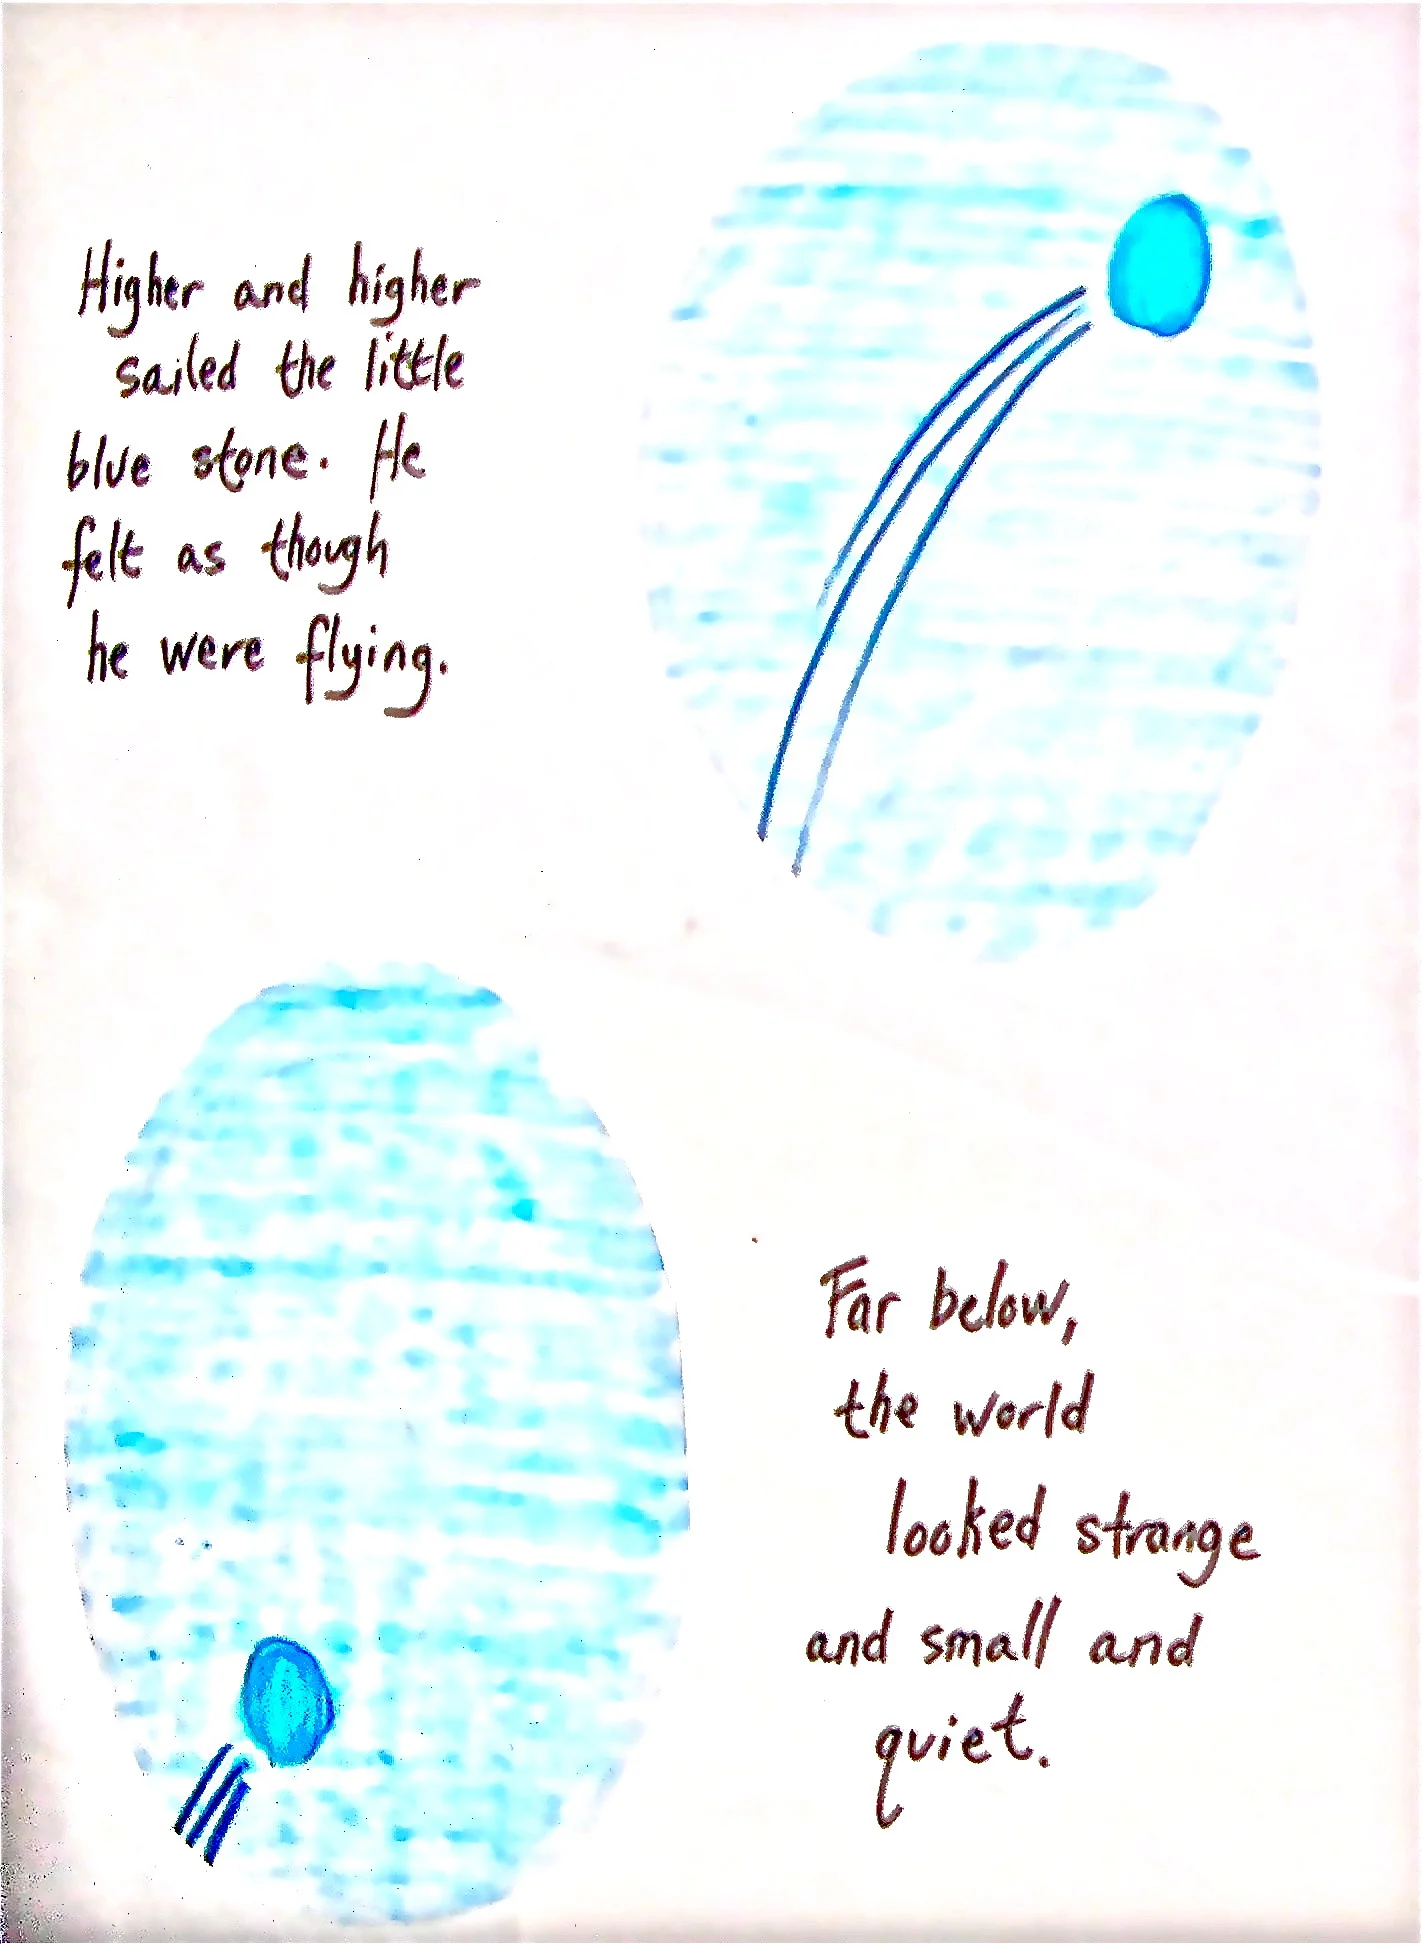 Higher and higher
sailed the little
blue stone. He
felt as though
he were flying.
Far below,
the world
looked strange
and small and
quiet.